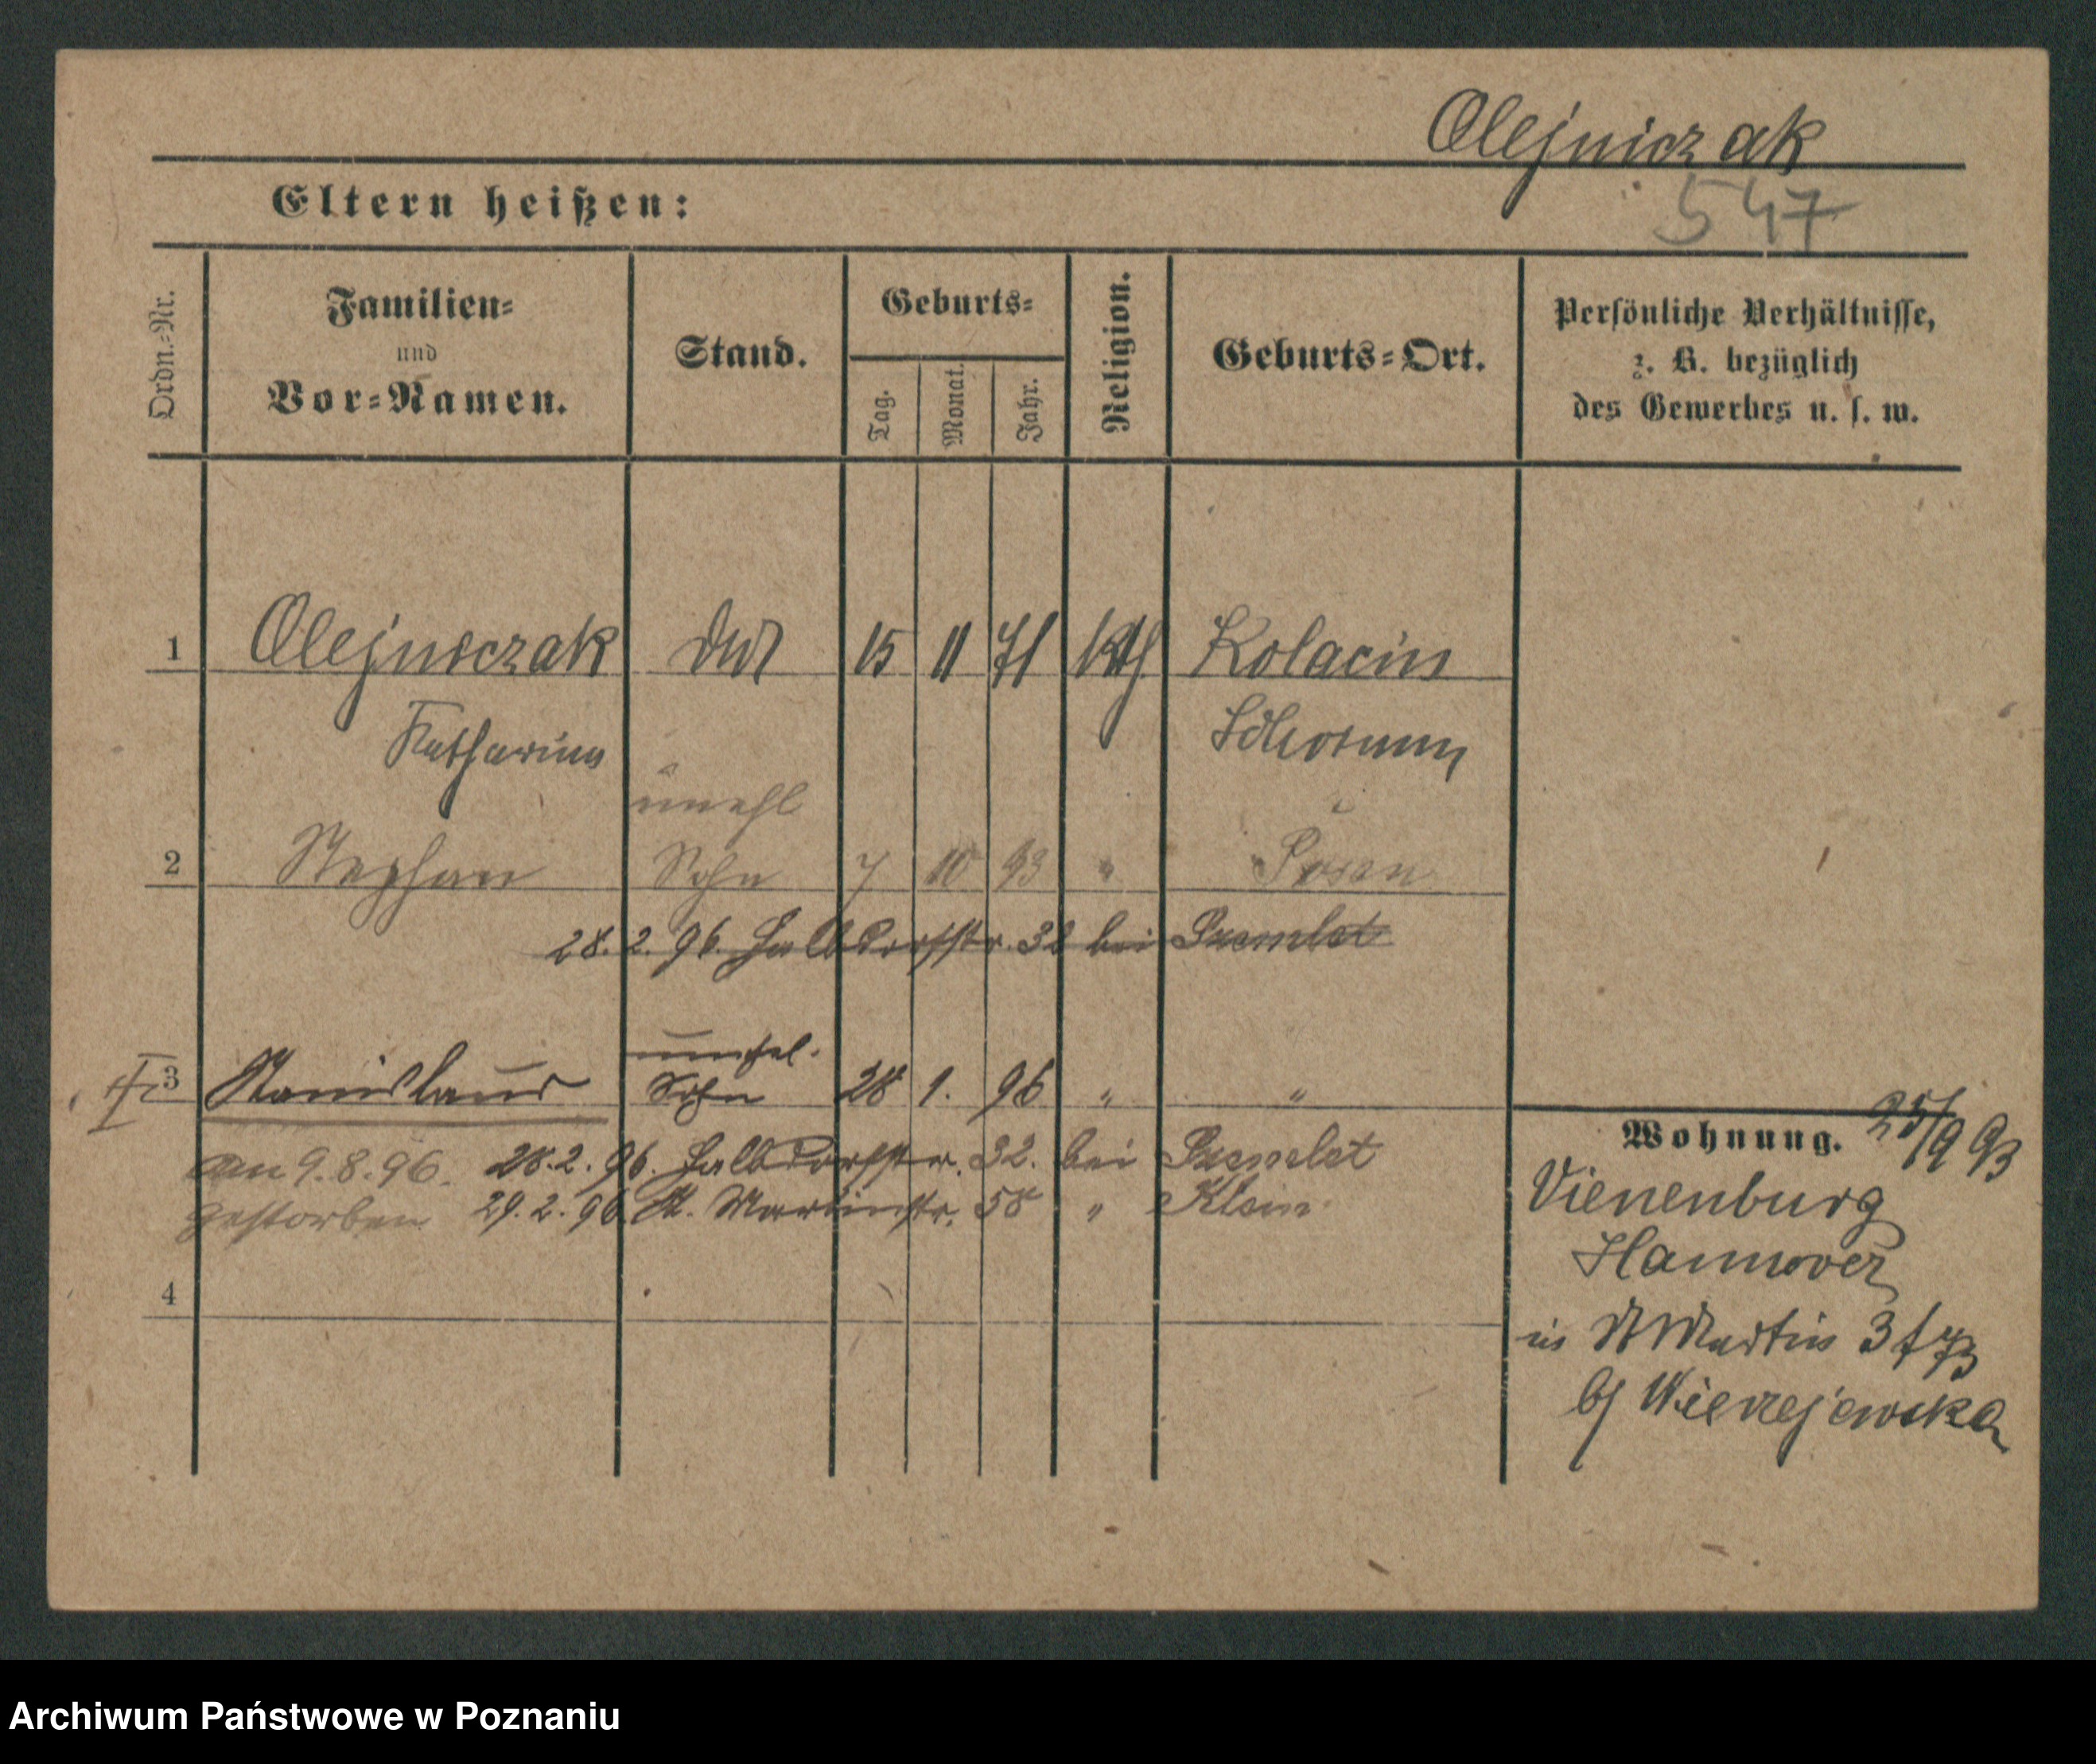 Olejniczak
547
Eltern heißen:
Ordn.-Nr.
Familien-
und
Vor-Namen.
Stand.
Geburts-
Tag.
Monat.
Jahr.
Religion.
Geburts-Ort.
Persönliche Verhältnisse,
z. B. bezüglich
des Gewerbes u. s. w.
1 Olejniczak 15 11 71 kth Kolacin
Katharina Schrimm
unehl
2 Stephan Sohn 7 10 93 " Posen
28. 2. 96. Halbdorfstr. 32 bei
unehel.
3 Stanislaus Sohn 28 1. 96 " "
am 9.8.96. 28.2.96. Halbdorfstr. 32. bei
gestorben 29.2.96. St. Martinstr. 58 " Klein
4
Wohnung. 25/9 93
Vienenburg
Hannover
in St Martin
b/ Wierzejewska
Archiwum Państwowe w Poznaniu